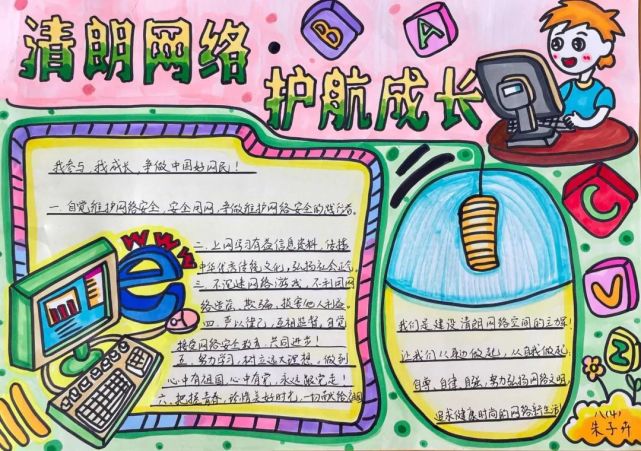 清朗网络·
护航成长
B
A
C
V
N
www
e
我参与,我成长,争做中国好网民!
一.自觉维护网络安全,安全用网,争做维护网络安全的践行者。
二.上网学习有益信息资料,传播
中华优秀传统文化,弘扬社会正气。
三.不沉迷网络游戏,不利用网
络造谣、欺骗、损害他人利益。
四.严以律己,互相监督,自觉
接受网络安全教育,共同进步!
五.努力学习,树立远大理想,做到
心中有祖国,心中有党,永远跟党走!
六.把握青春,珍惜美好时光,一切献给祖国
我们是建设清朗网络空间的主力军!
让我们从现在做起,从自我做起,
自尊,自律,自强,努力弘扬网络文明,
追求健康时尚的网络新生活
八(4)
朱子卉